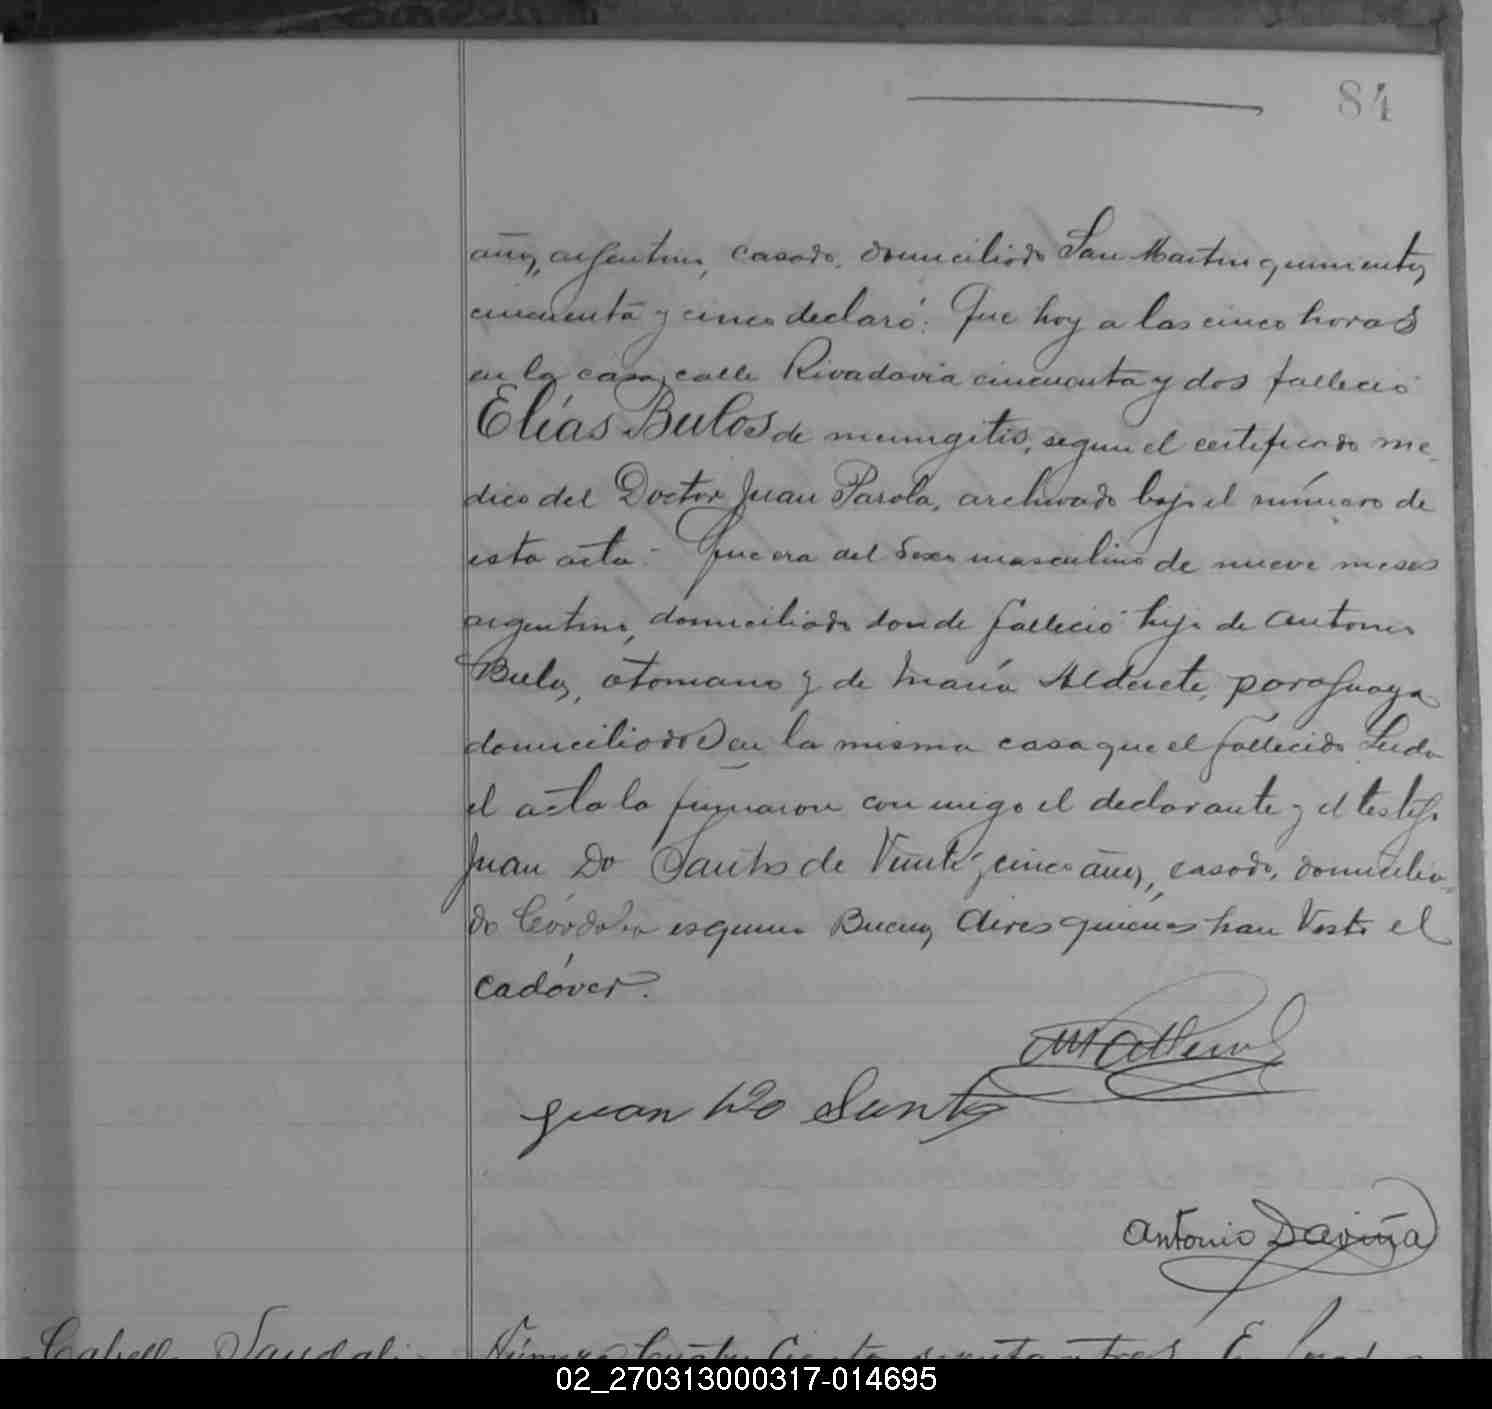 84
años, argentino, casado, domiciliado San Martin quinientos
cincuenta y cinco declaró: Que hoy a las cinco horas
en la casa, calle Rivadavia cincuenta y dos falleció
Elías Bulos de meningitis, segun el certificado me-
dico del Doctor Juan Parola, archivado bajo el número de
esta acta.- Que era del sexo masculino de nueve meses
argentino, domiciliado donde falleció hijo de Antonio
Bulos, otomano y de María Alderete, paraguaya
domiciliados en la misma casa que el fallecido. Leida
el acta la firmaron con migo el declarante y el testigo
Juan Do Santos de Veinte y cinco años, casado, domicilia-
do Córdoba esquina Buenos Aires quienes han Visto el
cadáver.
Juan Do Santos
Antonio Daviña
Número Cuatro Cientos
02_270313000317-014695